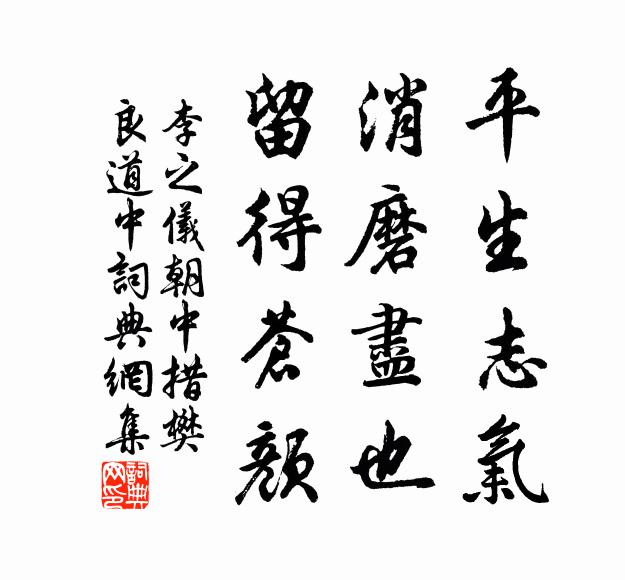 平生志氣
消磨盡也
留得蒼顏
李之儀朝中措樊
良道中詞典網集
詞典网印